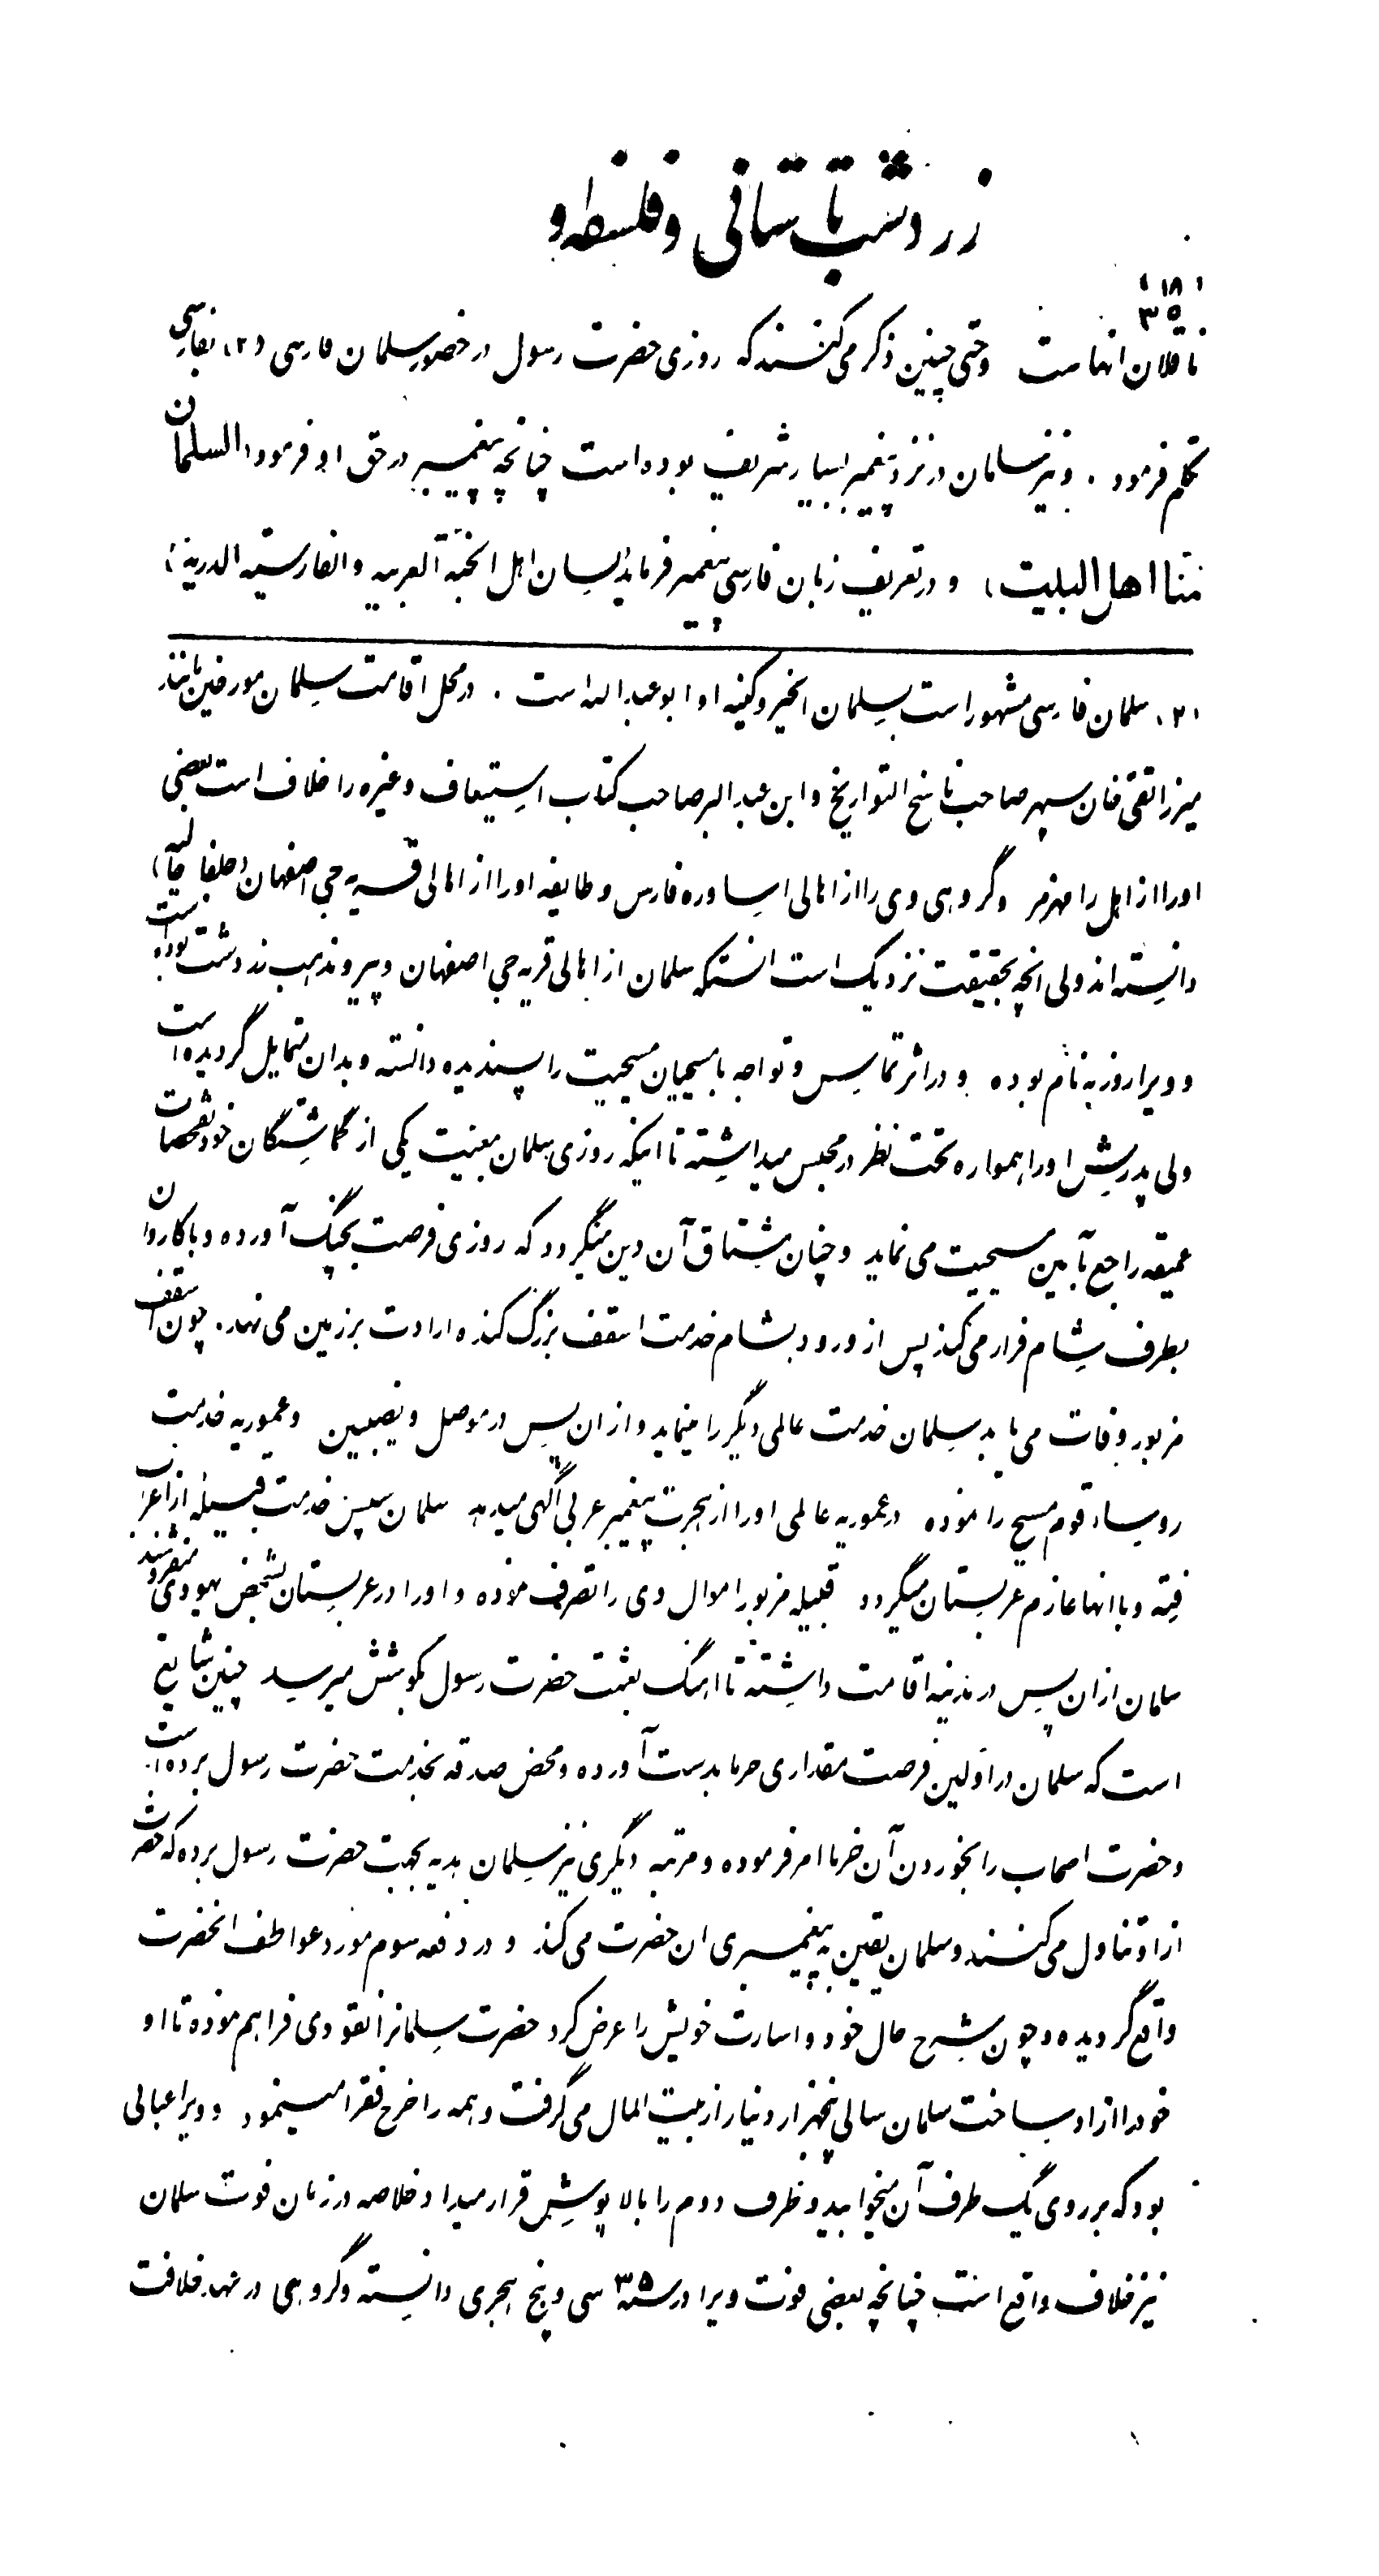 زردشت باستانی و فلسفه او
۱۸
۳۵
ناقلان انهاست وحتی چنین ذکر می کنند که روزی حضرت رسول در حضور سلمان فارسی (۲) بفارسی
تکلم فرمود . و نیز سلمان در نزد پیغمبر بسیار شریف بوده است چنانچه پیغمبر در حق او فرمود (السلمان
منا اهل البیت) و در تعریف زبان فارسی پیغمبر فرماید (لسان اهل الجنة العربیه و الفارسیته الدریة)
(۲) سلمان فارسی مشهور است بسلمان الخیر و کنیه او ابو عبدالله است . در محل اقامت سلمان مورخین مانند
میرزا تقی خان سپهر صاحب ناسخ التواریخ و ابن عبدالبر صاحب کتاب استیعاف و غیره را خلاف است بعضی
اورا از اهل رامهرمز وگروهی وی را از اهالی اساوره فارس و طایفه اورا از اهالی قریه جی اصفهان
دانسته اند ولی انچه بحقیقت نزدیک است انستکه سلمان از اهالی قریه جی اصفهان و پیرو مذهب زردشت بوده است
و ویرا روزبه نام بوده و در اثر تماس و تواجه با مسیحیان مسیحیت را پسندیده دانسته و بدان متمایل گردیده است
ولی پدرش اورا همواره تحت نظر در محبس میداشته تا اینکه روزی سلمان بمعیت یکی از گماشتگان خود تفحصات
عمیقه راجع بآیین مسیحیت می نماید و چنان مشتاق آن دین میگردد که روزی فرصت بچنگ آورده و با کاروان
بطرف شام فرار می کند پس از ورود بشام خدمت اسقف بزرگ کنده ارادت بر زمین می نهد. چون اسقف
مزبور وفات می یابد سلمان خدمت عالمی دیگر را مینماید و از ان پس در موصل و نصیبین و عموریه خدمت
روساء قوم مسیح را نموده در عموریه عالمی اورا از هجرت پیغمبر عربی آگهی میدهد سلمان سپس خدمت قبیله از اعراب
رفته و با انها عازم عربستان میگردد قبیله مزبور اموال وی را تصرف نموده و اورا در عربستان بشخص یهودی میفروشند
سلمان از ان پس در مدینه اقامت داشته تا اهنگ بعثت حضرت رسول بگوشش میرسد چنین شایع
است که سلمان در اولین فرصت مقداری خرما بدست آورده و محض صدقه بخدمت حضرت رسول برده است
و حضرت اصحاب را بخوردن آن خرما امر فرموده و مرتبه دیگری نیز سلمان هدیه بجهت حضرت رسول برده که حضرت
ازاو تناول می کنند و سلمان یقین به پیغمبری ان حضرت می کند و در دفعه سوم مورد عواطف انحضرت
واقع گردیده و چون شرح حال خود و اسارت خویش را عرض کرد حضرت سلمانرا نقودی فراهم نموده تا او
خودرا ازاد ساخت سلمان سالی پنجهزار دینار از بیت المال می گرفت و همه را خرج فقرا مینمود و ویرا عبائی
بود که بر روی یک طرف آن میخوابید و طرف دوم را بالاپوش قرار میداد خلاصه در زمان فوت سلمان
نیز خلاف واقع است چنانچه بعضی فوت ویرا در سنه ۳۵ سی و پنج هجری دانسته وگروهی در عهد خلافت